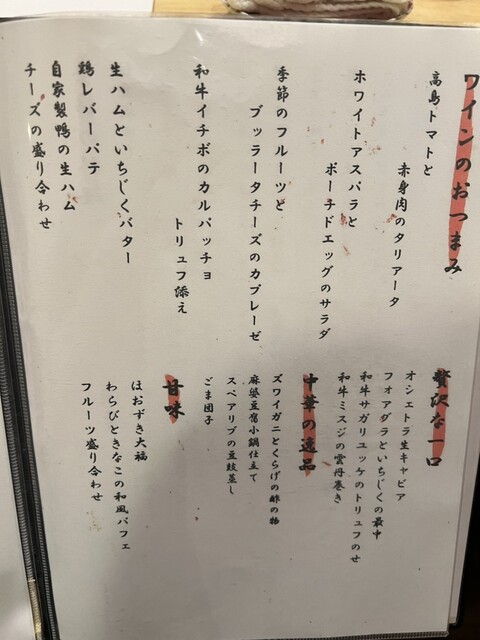 ワインのおつまみ
高島トマトと
赤身肉のタリアータ
ホワイトアスパラと
ポーチドエッグのサラダ
季節のフルーツと
ブッラータチーズのカプレーゼ
和牛イチボのカルパッチョ
トリュフ添え
生ハムといちじくバター
鶏レバーパテ
自家製鴨の生ハム
チーズの盛り合わせ
贅沢な一口
オシェトラ生キャビア
フォアグラといちじくの最中
和牛サガリユッケのトリュフのせ
和牛ミスジの雲丹巻き
中華の逸品
ズワイガニとくらげの酢の物
麻婆豆腐小鍋仕立て
スペアリブの豆豉蒸し
ごま団子
甘味
ほおずき大福
わらびときなこの和風パフェ
フルーツ盛り合わせ